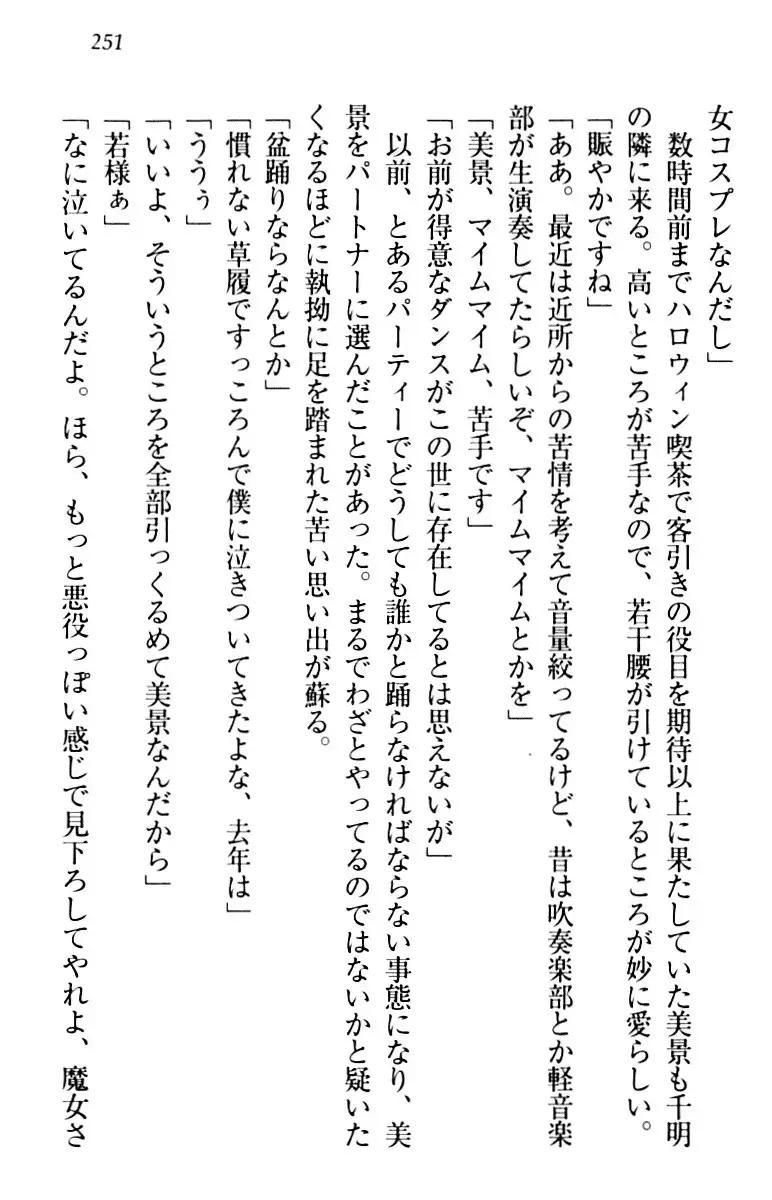 251
女コスプレなんだし」
　数時間前までハロウィン喫茶で客引きの役目を期待以上に果たしていた美景も千明
の隣に来る。高いところが苦手なので、若干腰が引けているところが妙に愛らしい。
「賑やかですね」
「ああ。最近は近所からの苦情を考えて音量絞ってるけど、昔は吹奏楽部とか軽音楽
部が生演奏してたらしいぞ、マイムマイムとかを」
「美景、マイムマイム、苦手です」
「お前が得意なダンスがこの世に存在してるとは思えないが」
　以前、とあるパーティーでどうしても誰かと踊らなければならない事態になり、美
景をパートナーに選んだことがあった。まるでわざとやってるのではないかと疑いた
くなるほどに執拗に足を踏まれた苦い思い出が蘇る。
「盆踊りならなんとか」
「慣れない草履ですっころんで僕に泣きついてきたよな、去年は」
「ううぅ」
「いいよ、そういうところを全部引っくるめて美景なんだから」
「若様ぁ」
「なに泣いてるんだよ。ほら、もっと悪役っぽい感じで見下ろしてやれよ、魔女さ